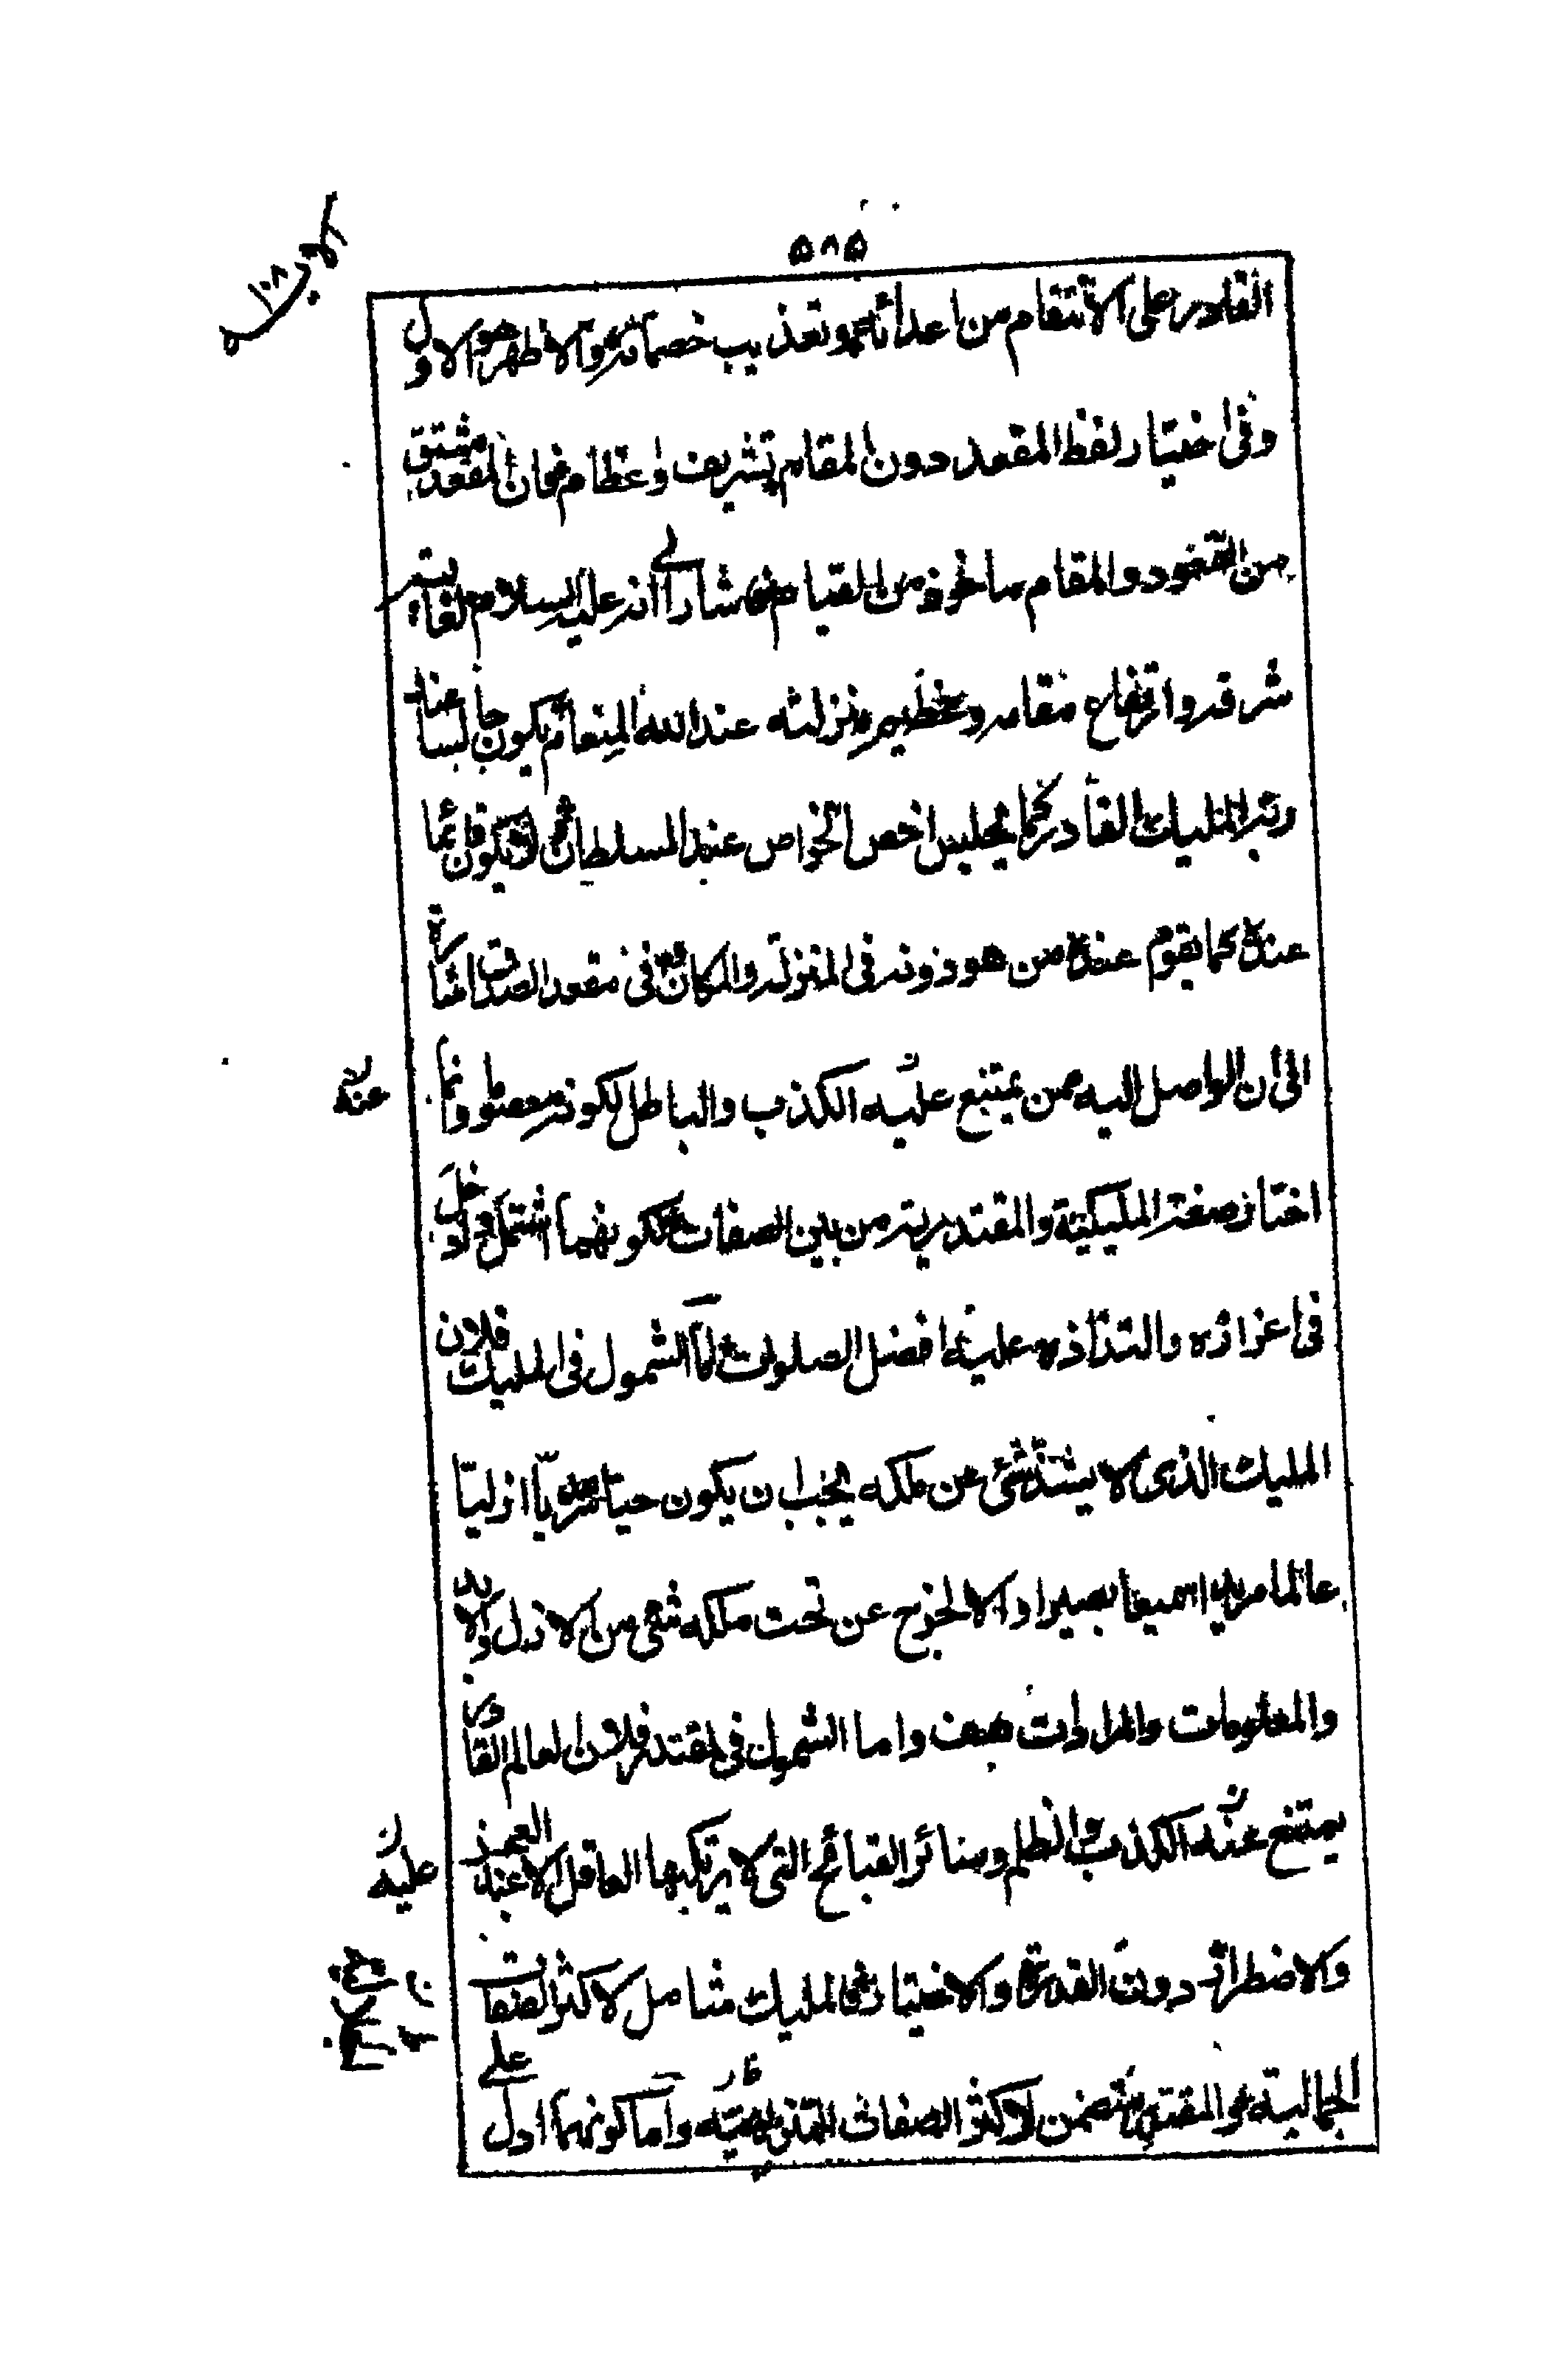 ۵۸۵
القادر على الانتقام من اعدائهم وتعذيب خصمائه والاظهر هو الاول
وفى اختيار لفظ المقعد دون المقام تشريف واعظام فان المقعد مشتق
من القعود والمقام ماخوذ من القيام فاشار الى انه عليه السلام لغاية
شرفه وارتفاع مقامه وعظيم منزلته عند الله المنعام يكون جالسا عند
ربه المليك القادر كما يجلس اخص الخواص عند السلطان لا يكون قائما
عنده كما يقوم عنده من هو دونه فى المنزلة والمكان وفى مقعد الصدق اشارة
الى ان الواصل اليه ممن يمتنع عليه الكذب والباطل لكونه معصوما وانما
عنه
اختار صفة المليكية والمقتدرية من بين الصفات لكونهما اشمل وادخل
فى اعزازه والتذاذه عليه افضل الصلوات اما الشمول فى المليك فلان
المليك الذى لا يشذ شئ عن ملكه يجب ان يكون حيا سرمديا ازليا
عالما مريدا سميعا بصيرا والا لخرج عن تحت ملكه شئ من الازل والابد
والمعلومات والمرادات واما الشمول فى المقتدر فلان العالم القادر
يمتنع عنه الكذب والظلم وسائر القبائح التى لا يرتكبها العاقل الا عند العجز
عليه
والاضطرار دون القدرة والاختيار فالمليك شامل لاكثر الصفات
الجمالية والمقتدر متضمن لاكثر الصفات التنزيهية واما كونهما ادل على